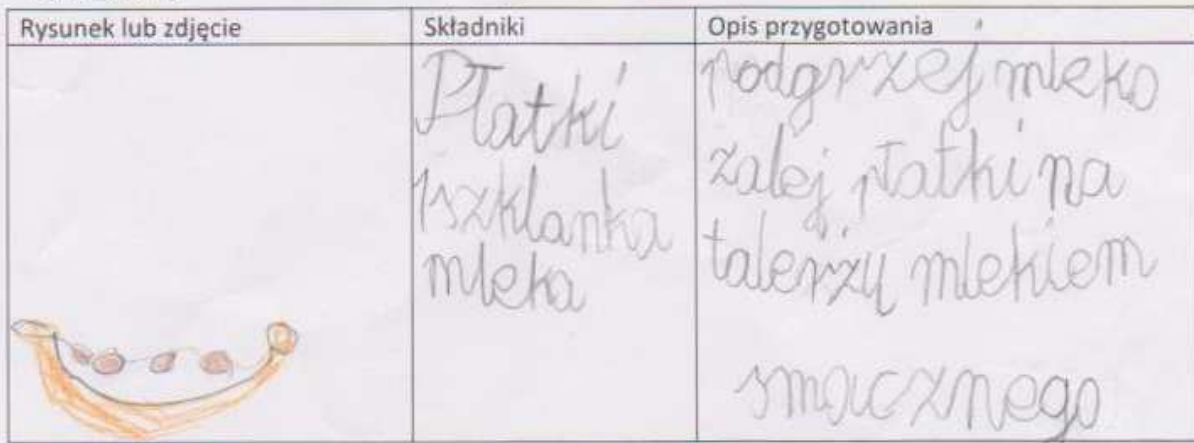 Rysunek lub zdjęcie
Składniki
Opis przygotowania
Płatki
1 szklanka
mleka
podgrzej mleko
zalej płatki na
talerzu mlekiem
smacznego